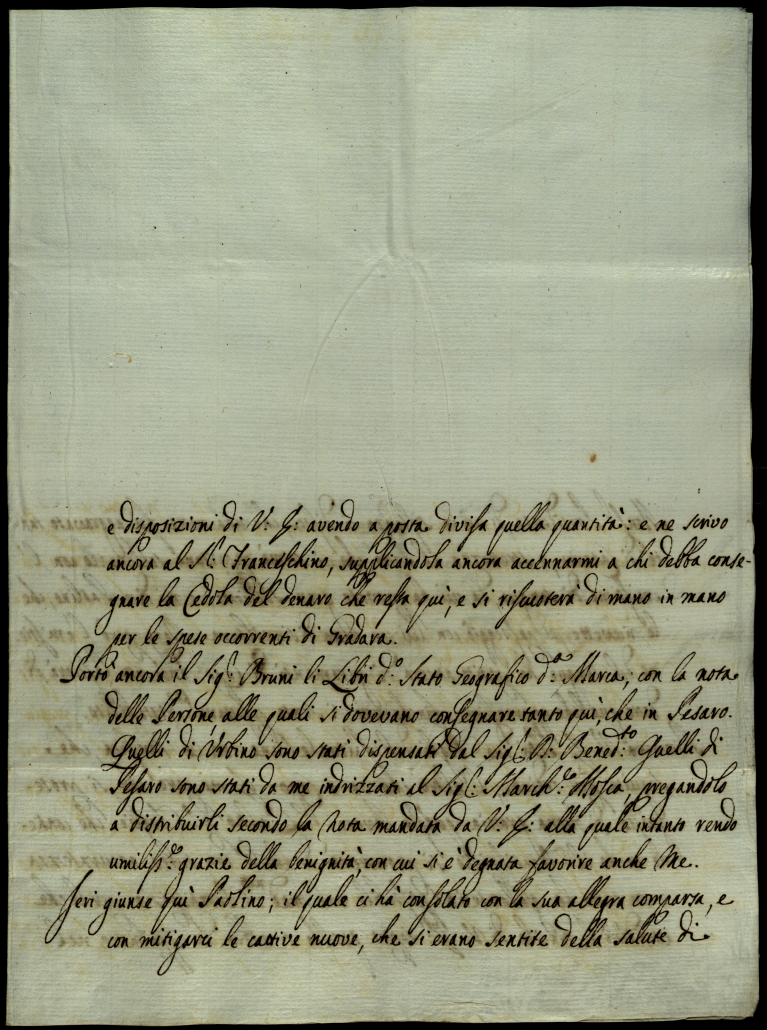 e disposizioni di V: S: avendo a posta divisa quella quantità: e ne scrivo
ancora al S.r Franceschino, supplicandola ancora accennarmi a chi debba conse-
gnare la Cedola del denaro che resta quì, e si riscuoterà di mano in mano
per le spese occorrenti di Gradara.
Portò ancora il Sig.r Bruni li Libri d.o Stato Geografico d.a Marca, con la nota
delle Persone alle quali si dovevano consegnare tanto quì, che in Pesaro.
Quelli di Urbino sono stati dispensati dal Sig.r Bened.to Quelli di
Pesaro sono stati da me indrizzati al Sig.r March.e Mosca, pregandolo
a distribuirli secondo la nota mandata da V: S: alla quale intanto rendo
umiliss.e grazie della benignità, con cui si è degnata favorire anche Me.
Jeri giunse quì Paolino; il quale ci hà consolato con la sua allegra comparsa, e
con mitigarci le cattive nuove, che si erano sentite della salute di